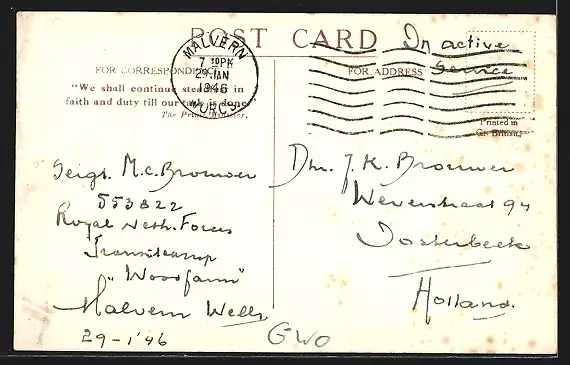 POST CARD
In active
Service
MALVERN
7 10PM
29 JAN
1946
WORCS.
FOR CORRESPONDENCE
FOR ADDRESS
"We shall continue steadfast in
faith and duty till our task is done"
The Prime Minister.
Printed in
Gt. Britain.
M.C. Brouwer
553822
Royal Neth. Forces
Transitcamp
"Woodfarm"
Malvern Wells
29-1'46
Dhr. J. K. Brouwer
Weverstraat 94
Oosterbeek
Holland.
GWO